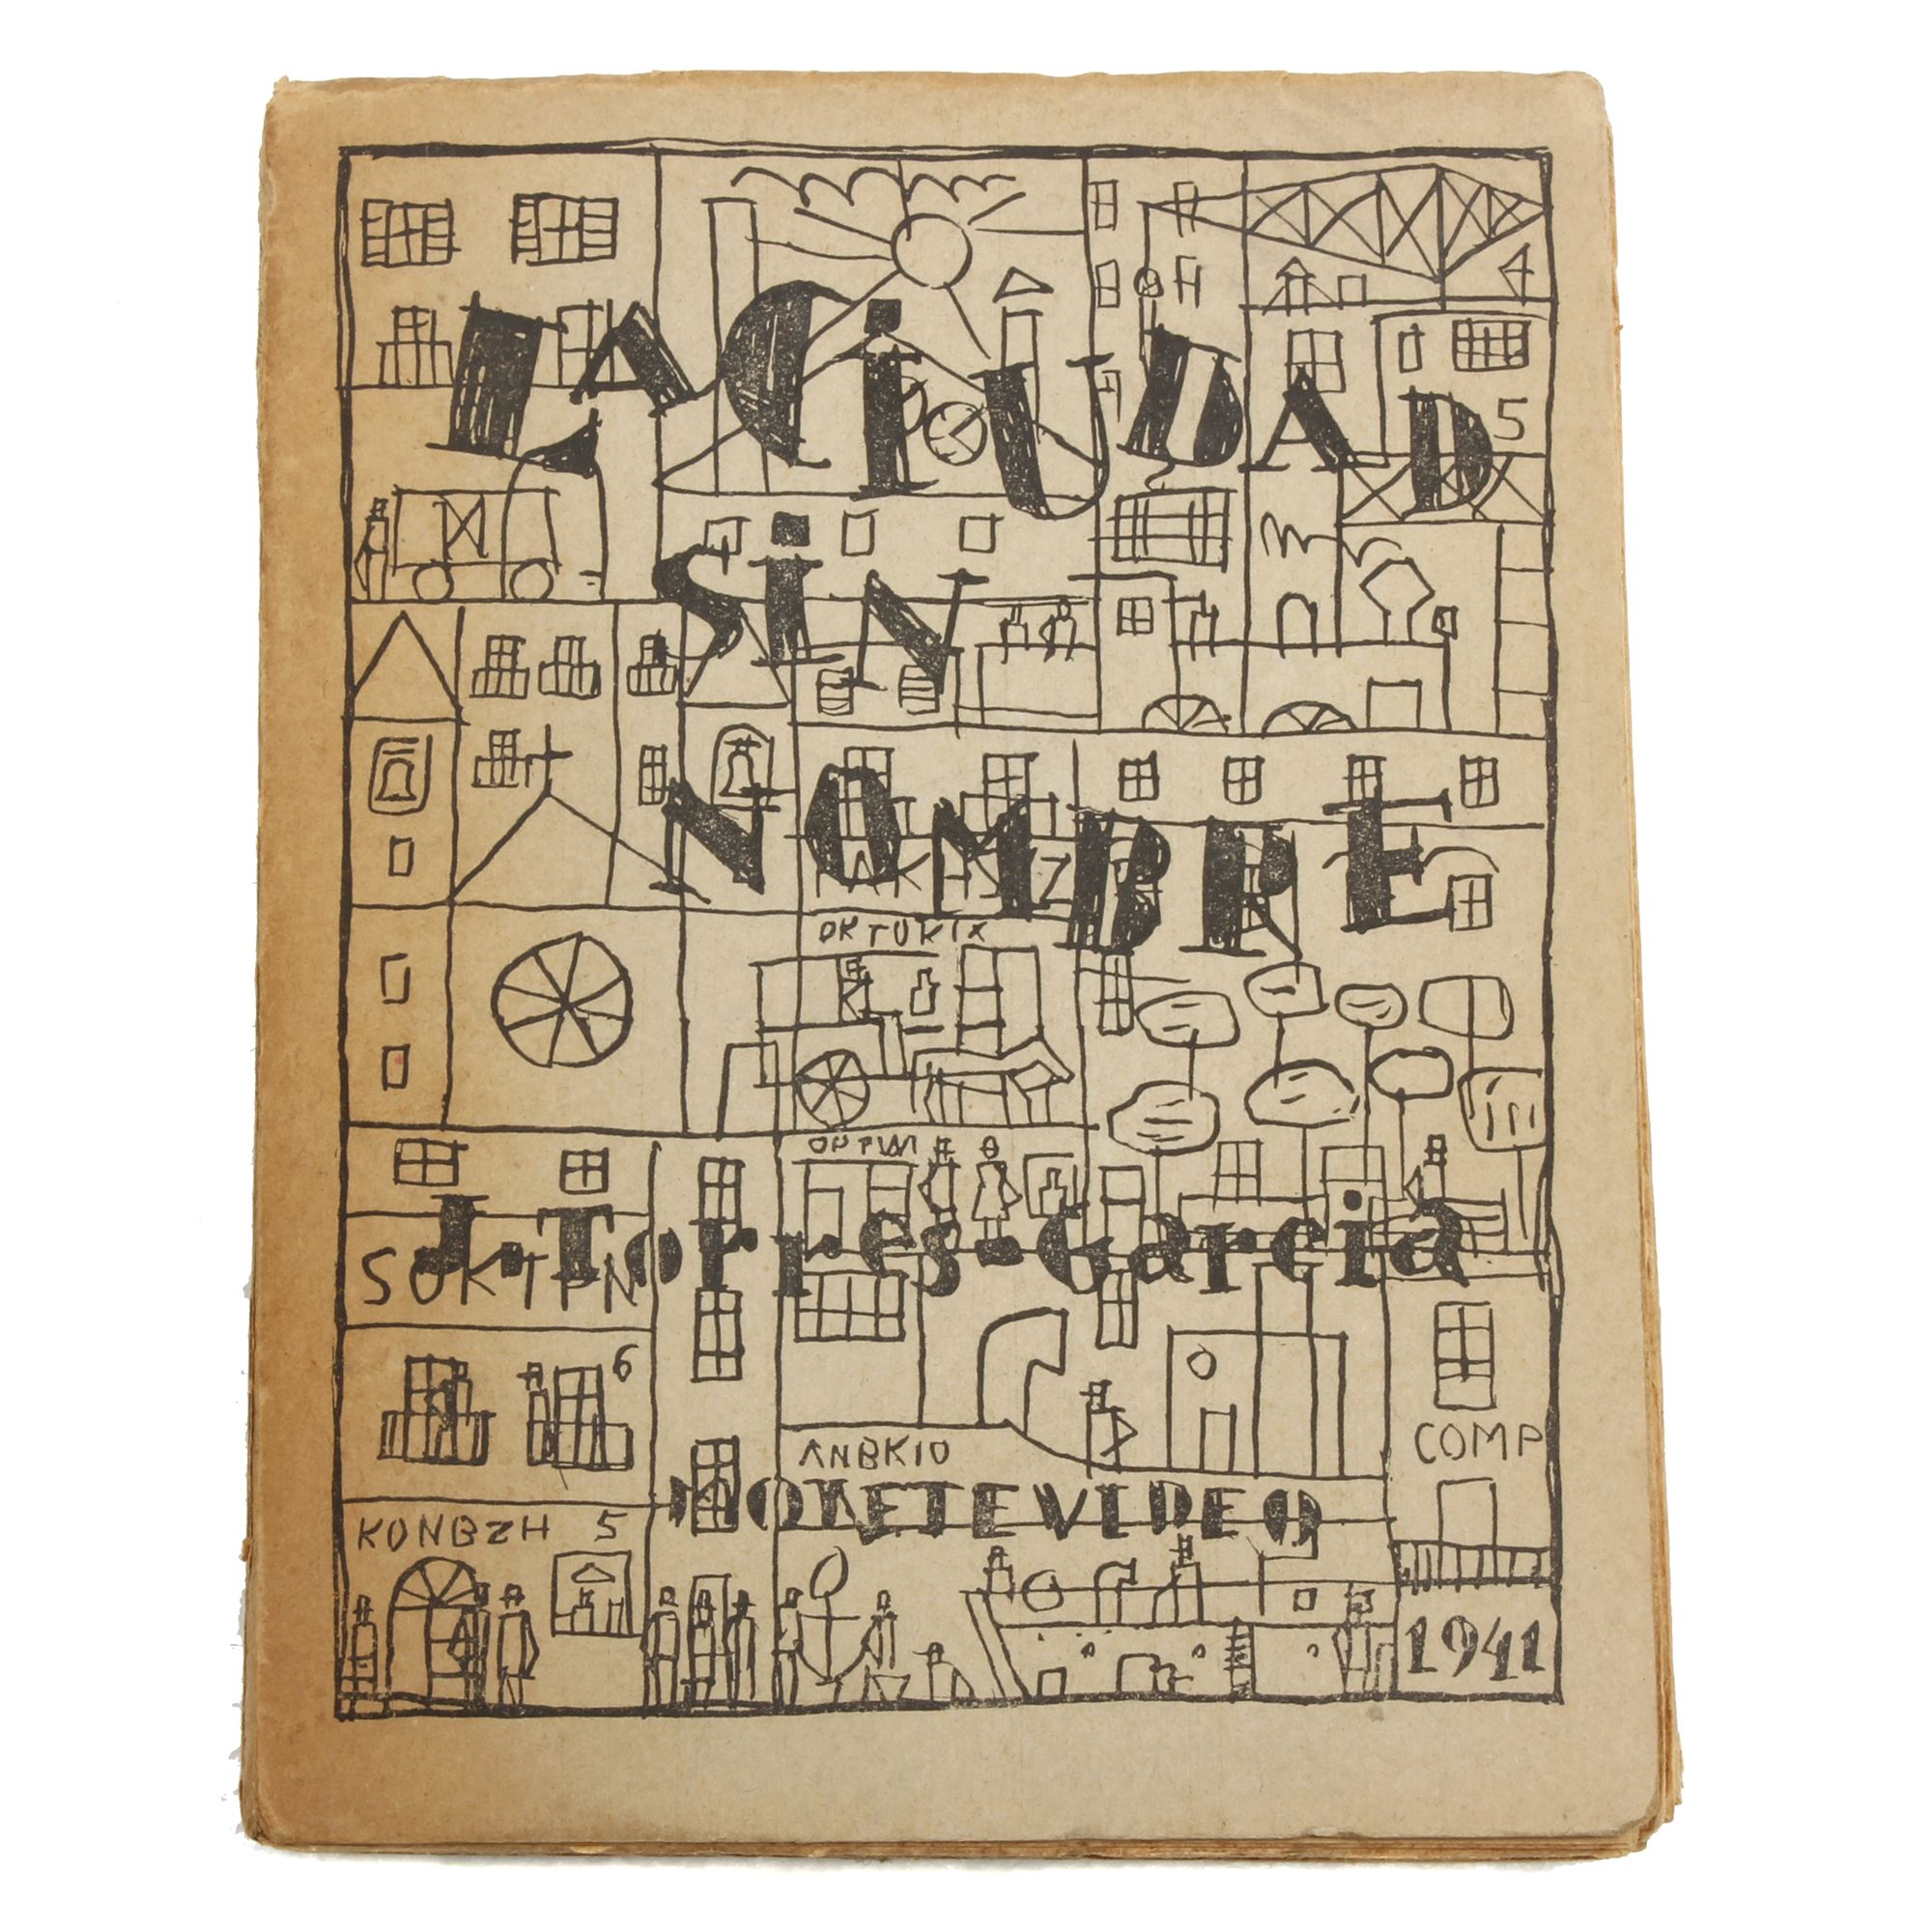 4
LA CiUDAD
5
SiN
NOMBRE
OKTUKIX
J. Torres-García
SOKTPN
6
COMP
ANBKIO
MONTEVIDEO
KONBZH 5
1941